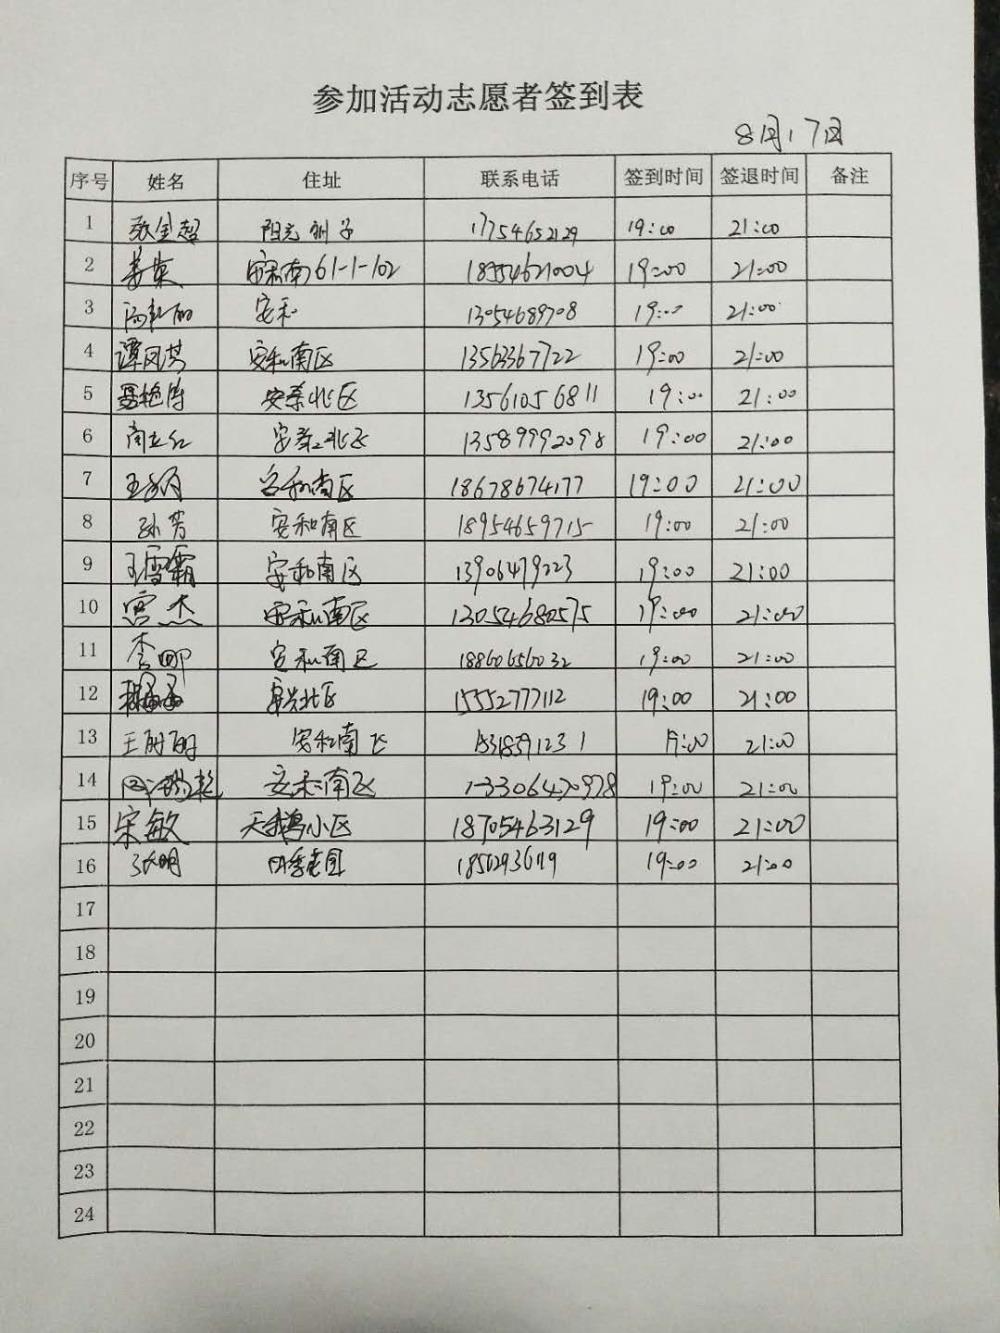 参加活动志愿者签到表
8月17日
序号 姓名 住址 联系电话 签到时间 签退时间 备注
1 张金超 阳光 17754652129 19:00 21:00
2 姜英 安和南61-1-102 18354621004 19:00 21:00
3 安和 13054689708 19:00 21:00
4 谭凤芳 安和南区 13563367722 19:00 21:00
5 聂艳涛 安泰北区 13561056811 19:00 21:00
6 商立红 安泰北区 13589992098 19:00 21:00
7 安和南区 18678674177 19:00 21:00
8 孙芳 安和南区 18954659715 19:00 21:00
9 王雪霜 安和南区 13906479223 19:00 21:00
10 宫杰 安和南区 13054680575 19:00 21:00
11 李娜 安和南区 18860656032 19:00 21:00
12 安兴北区 15552777112 19:00 21:00
13 王丽丽 安和南区 19:00 21:00
14 安和南区 13306470978 19:00 21:00
15 宋敏 天鹅小区 18705463129 19:00 21:00
16 张明 四季花园 19:00 21:00
17
18
19
20
21
22
23
24